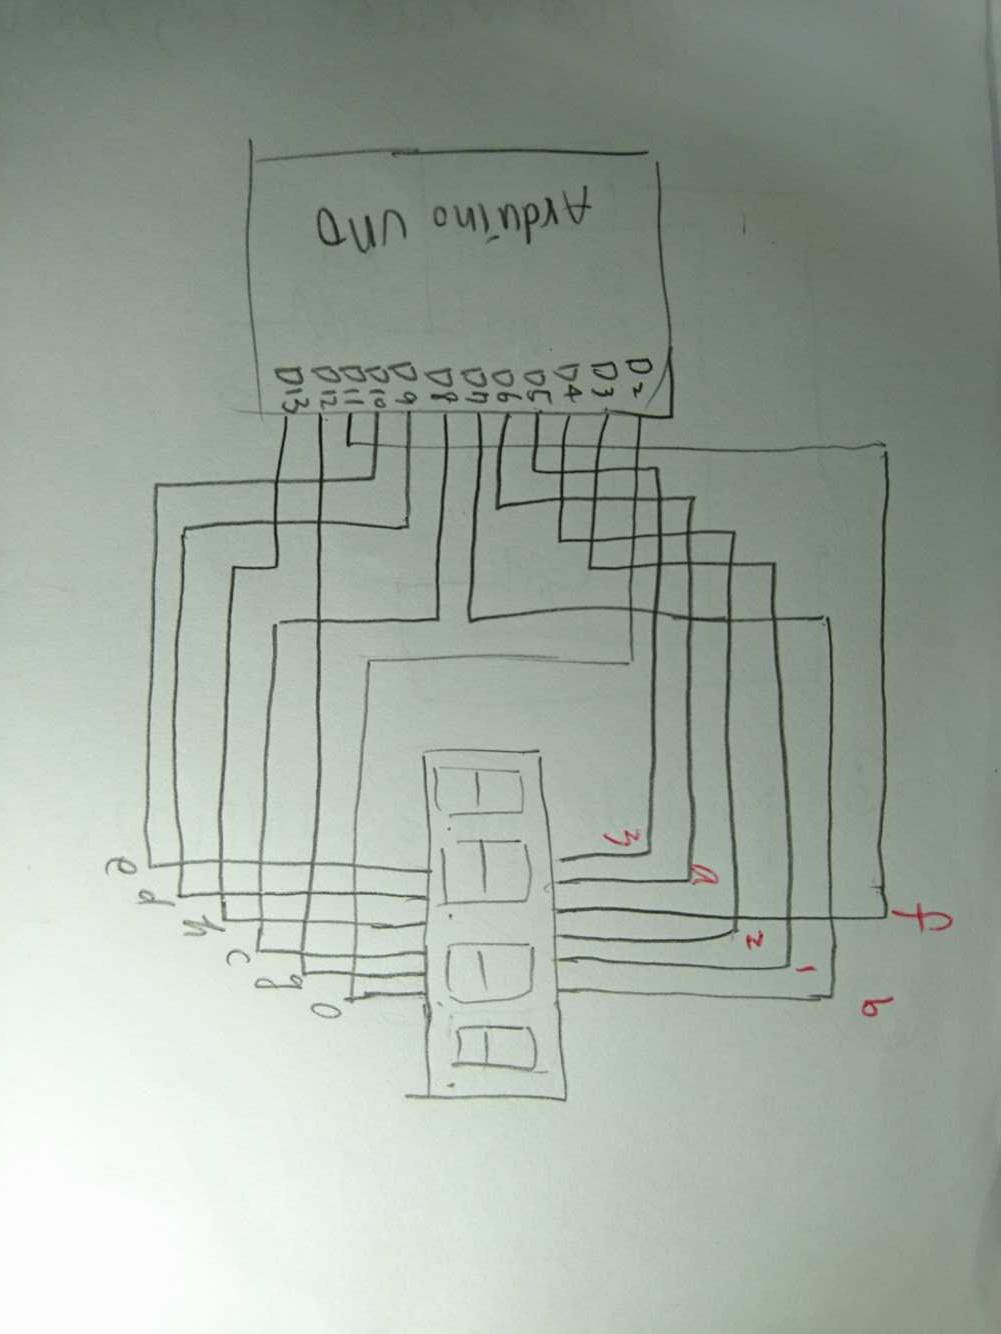 b
1
2
f
a
3
0
g
c
h
d
e
D2
D3
D4
D5
D6
D7
D8
D9
D10
D11
D12
D13
Arduino UNO